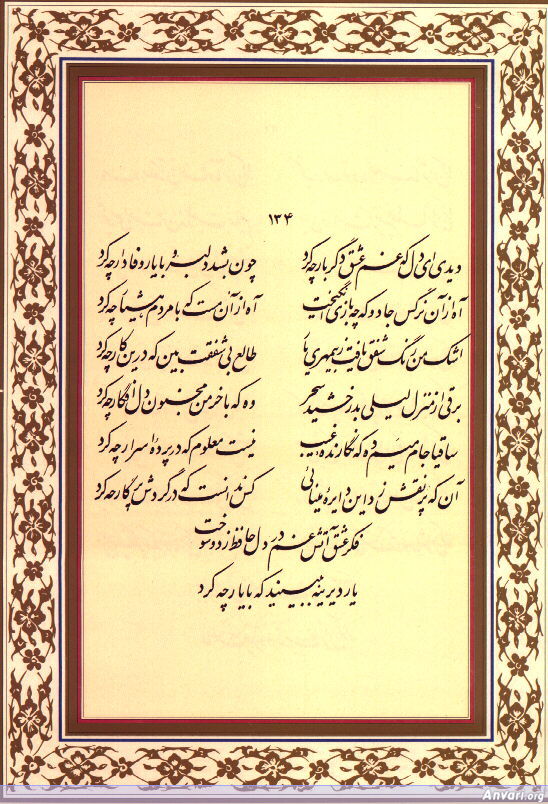 ۱۳۴
دیدی ای دل که غم عشق دگر بار چه کرد    چون بشد دلبر و با یار وفادار چه کرد
آه از آن نرگس جادو که چه بازی انگیخت    آه از آن مست که با مردم هشیار چه کرد
اشک من رنگ شفق یافت ز بیمهری یار    طالع بی شفقت بین که درین کار چه کرد
برقی از منزل لیلی بدرخشید سحر    وه که با خرمن مجنون دل افگار چه کرد
ساقیا جام میم ده که نگارنده غیب    نیست معلوم که در پرده اسرار چه کرد
آن که پر نقش زد این دایره مینائی    کس ندانست که در گردش پرگار چه کرد
فکر عشق آتش غم در دل حافظ زد و سوخت
یار دیرینه ببینید که با یار چه کرد
Anvari.org